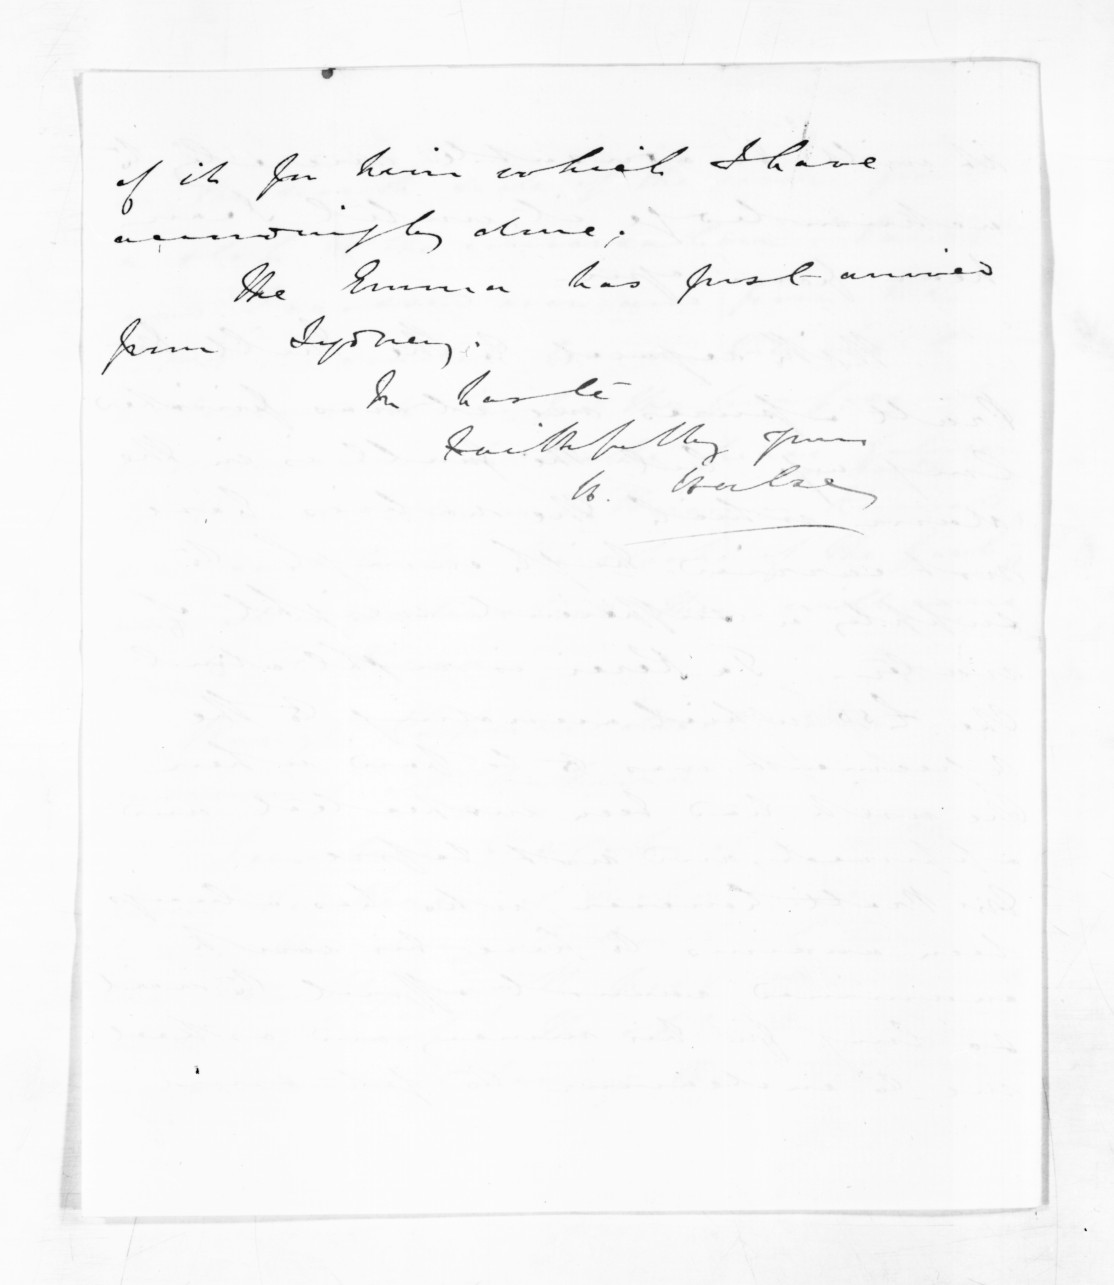 of it for him which I have
accordingly done.
The Emma has just arrived
from Sydney.
In haste
Faithfully yours
H. Halse